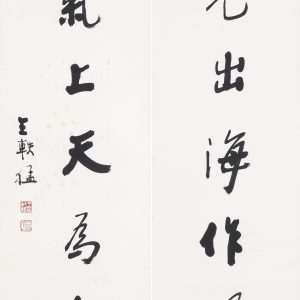 出海作
氣上天為
王軼猛